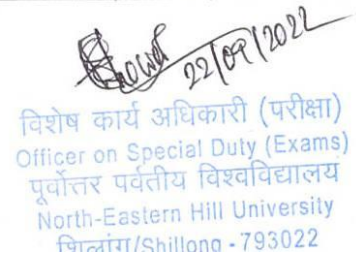 22/09/2022
विशेष कार्य अधिकारी (परीक्षा)
Officer on Special Duty (Exams)
पूर्वोत्तर पर्वतीय विश्वविद्यालय
North-Eastern Hill University
शिलांग/Shillong - 793022